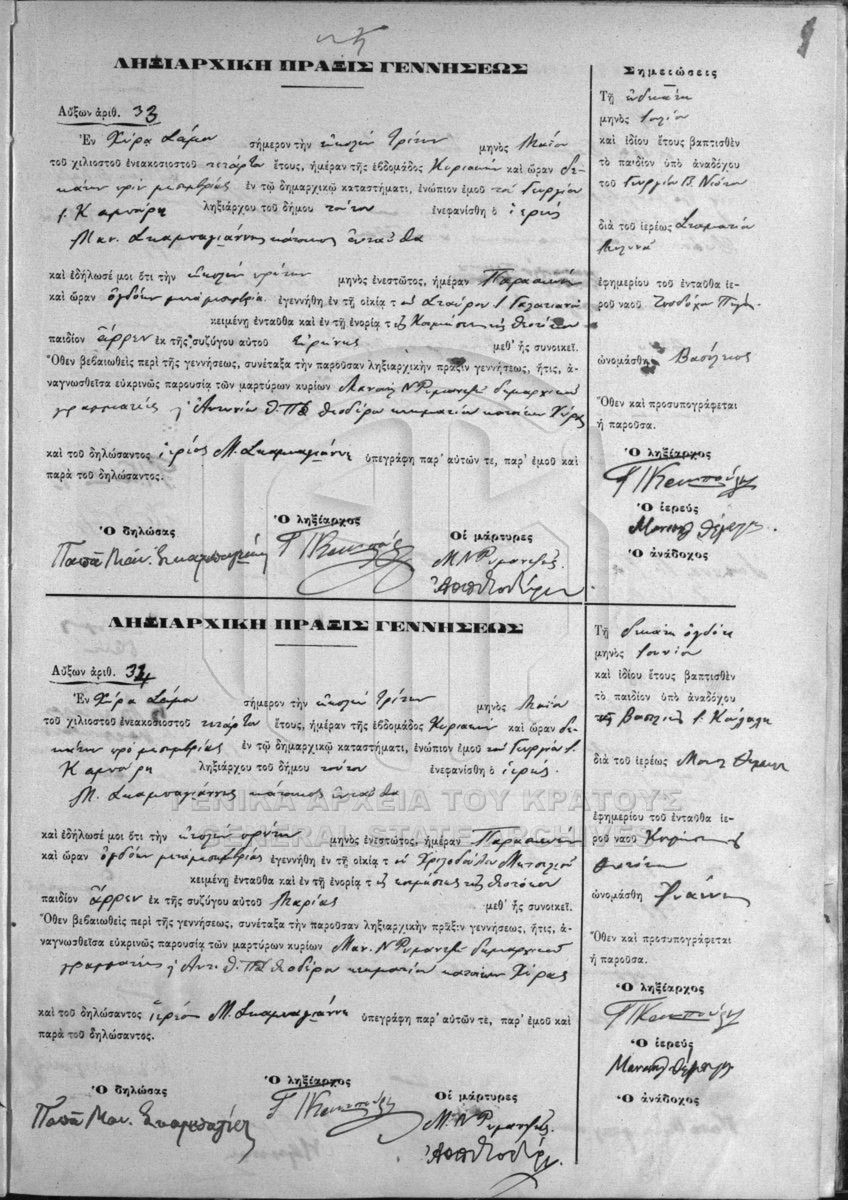 ΛΗΞΙΑΡΧΙΚΗ ΠΡΑΞΙΣ ΓΕΝΝΗΣΕΩΣ
Αὔξων ἀριθ. 33
Ἐν Χώρᾳ Σάμου σήμερον τὴν εἰκοστὴν τρίτην μηνὸς Μαΐου
τοῦ χιλιοστοῦ ἐνεακοσιοστοῦ τετάρτου ἔτους, ἡμέραν τῆς ἑβδομάδος Κυριακὴν καὶ ὥραν δε-
κάτην πρὸ μεσημβρίας ἐν τῷ δημαρχικῷ καταστήματι, ἐνώπιον ἐμοῦ τοῦ Γεωργίου
Ι. ληξιάρχου τοῦ δήμου τούτου ἐνεφανίσθη ὁ ἱερεὺς
Μαν. κάτοικος ἐνταῦθα
καὶ ἐδήλωσέ μοι ὅτι τὴν εἰκοστὴν πρώτην μηνὸς ἐνεστῶτος, ἡμέραν Παρασκευὴν
καὶ ὥραν ὀγδόην μεταμεσημβρία ἐγεννήθη ἐν τῇ οἰκίᾳ τοῦ Σταύρου Ι.
κειμένῃ ἐνταῦθα καὶ ἐν τῇ ἐνορίᾳ τῆς Κοιμήσεως τῆς Θεοτόκου
παιδίον ἄρρεν ἐκ τῆς συζύγου αὐτοῦ Εἰρήνης μεθ' ἧς συνοικεῖ.
Ὅθεν βεβαιωθεὶς περὶ τῆς γεννήσεως, συνέταξα τὴν παροῦσαν ληξιαρχικὴν πρᾶξιν γεννήσεως, ἥτις, ἀ-
ναγνωσθεῖσα εὐκρινῶς παρουσίᾳ τῶν μαρτύρων κυρίων Μανουὴλ Ν δημαρχικοῦ
γραμματέως Ἀντωνίου κτηματίου κατοίκων Χώρας
καὶ τοῦ δηλώσαντος ἱερέως Μ. ὑπεγράφη παρ' αὐτῶν τε, παρ' ἐμοῦ καὶ
παρὰ τοῦ δηλώσαντος.
Ὁ δηλώσας
Ὁ ληξίαρχος
Οἱ μάρτυρες
Παπᾶ Μαν.
Σημειώσεις
Τῇ ἑνδεκάτῃ
μηνὸς Ἰουλίου
καὶ ἰδίου ἔτους βαπτισθὲν
τὸ παιδίον ὑπὸ ἀναδόχου
τοῦ Γεωργίου
διὰ τοῦ ἱερέως Σταματίου
ἐφημερίου τοῦ ἐνταῦθα ἱε-
ροῦ ναοῦ Ζωοδόχου Πηγῆς
ὠνομάσθη Βασίλειος
Ὅθεν καὶ προσυπογράφεται
ἡ παροῦσα.
Ὁ ληξίαρχος
Ὁ ἱερεὺς
Ὁ ἀνάδοχος
ΛΗΞΙΑΡΧΙΚΗ ΠΡΑΞΙΣ ΓΕΝΝΗΣΕΩΣ
Αὔξων ἀριθ. 34
Ἐν Χώρᾳ Σάμου σήμερον τὴν εἰκοστὴν τρίτην μηνὸς Μαΐου
τοῦ χιλιοστοῦ ἐνεακοσιοστοῦ τετάρτου ἔτους, ἡμέραν τῆς ἑβδομάδος Κυριακὴν καὶ ὥραν δε-
κάτην πρὸ μεσημβρίας ἐν τῷ δημαρχικῷ καταστήματι, ἐνώπιον ἐμοῦ τοῦ Γεωργίου Ι.
ληξιάρχου τοῦ δήμου τούτου ἐνεφανίσθη ὁ ἱερεὺς
Μ. κάτοικος ἐνταῦθα
καὶ ἐδήλωσέ μοι ὅτι τὴν εἰκοστὴν πρώτην μηνὸς ἐνεστῶτος, ἡμέραν Παρασκευὴν
καὶ ὥραν ὀγδόην μεταμεσημβρίας ἐγεννήθη ἐν τῇ οἰκίᾳ τοῦ
κειμένῃ ἐνταῦθα καὶ ἐν τῇ ἐνορίᾳ τῆς κοιμήσεως τῆς Θεοτόκου
παιδίον ἄρρεν ἐκ τῆς συζύγου αὐτοῦ Μαρίας μεθ' ἧς συνοικεῖ.
Ὅθεν βεβαιωθεὶς περὶ τῆς γεννήσεως, συνέταξα τὴν παροῦσαν ληξιαρχικὴν πρᾶξιν γεννήσεως, ἥτις, ἀ-
ναγνωσθεῖσα εὐκρινῶς παρουσίᾳ τῶν μαρτύρων κυρίων Μαν. Ν δημαρχικοῦ
γραμματέως Ἀντ. κτηματίου κατοίκων Χώρας
καὶ τοῦ δηλώσαντος ἱερέως Μ. ὑπεγράφη παρ' αὐτῶν τε, παρ' ἐμοῦ καὶ
παρὰ τοῦ δηλώσαντος.
Ὁ δηλώσας
Ὁ ληξίαρχος
Οἱ μάρτυρες
Παπᾶ Μαν.
Τῇ δεκάτῃ ὀγδόῃ
μηνὸς Ἰουνίου
καὶ ἰδίου ἔτους βαπτισθὲν
τὸ παιδίον ὑπὸ ἀναδόχου
Ι.
διὰ τοῦ ἱερέως
ἐφημερίου τοῦ ἐνταῦθα ἱε-
ροῦ ναοῦ Κοιμήσεως
Θεοτόκου
ὠνομάσθη Ἰωάννης
Ὅθεν καὶ προσυπογράφεται
ἡ παροῦσα.
Ὁ ληξίαρχος
Ὁ ἱερεὺς
Ὁ ἀνάδοχος
ΓΕΝΙΚΑ ΑΡΧΕΙΑ ΤΟΥ ΚΡΑΤΟΥΣ
GENERAL STATE ARCHIVES